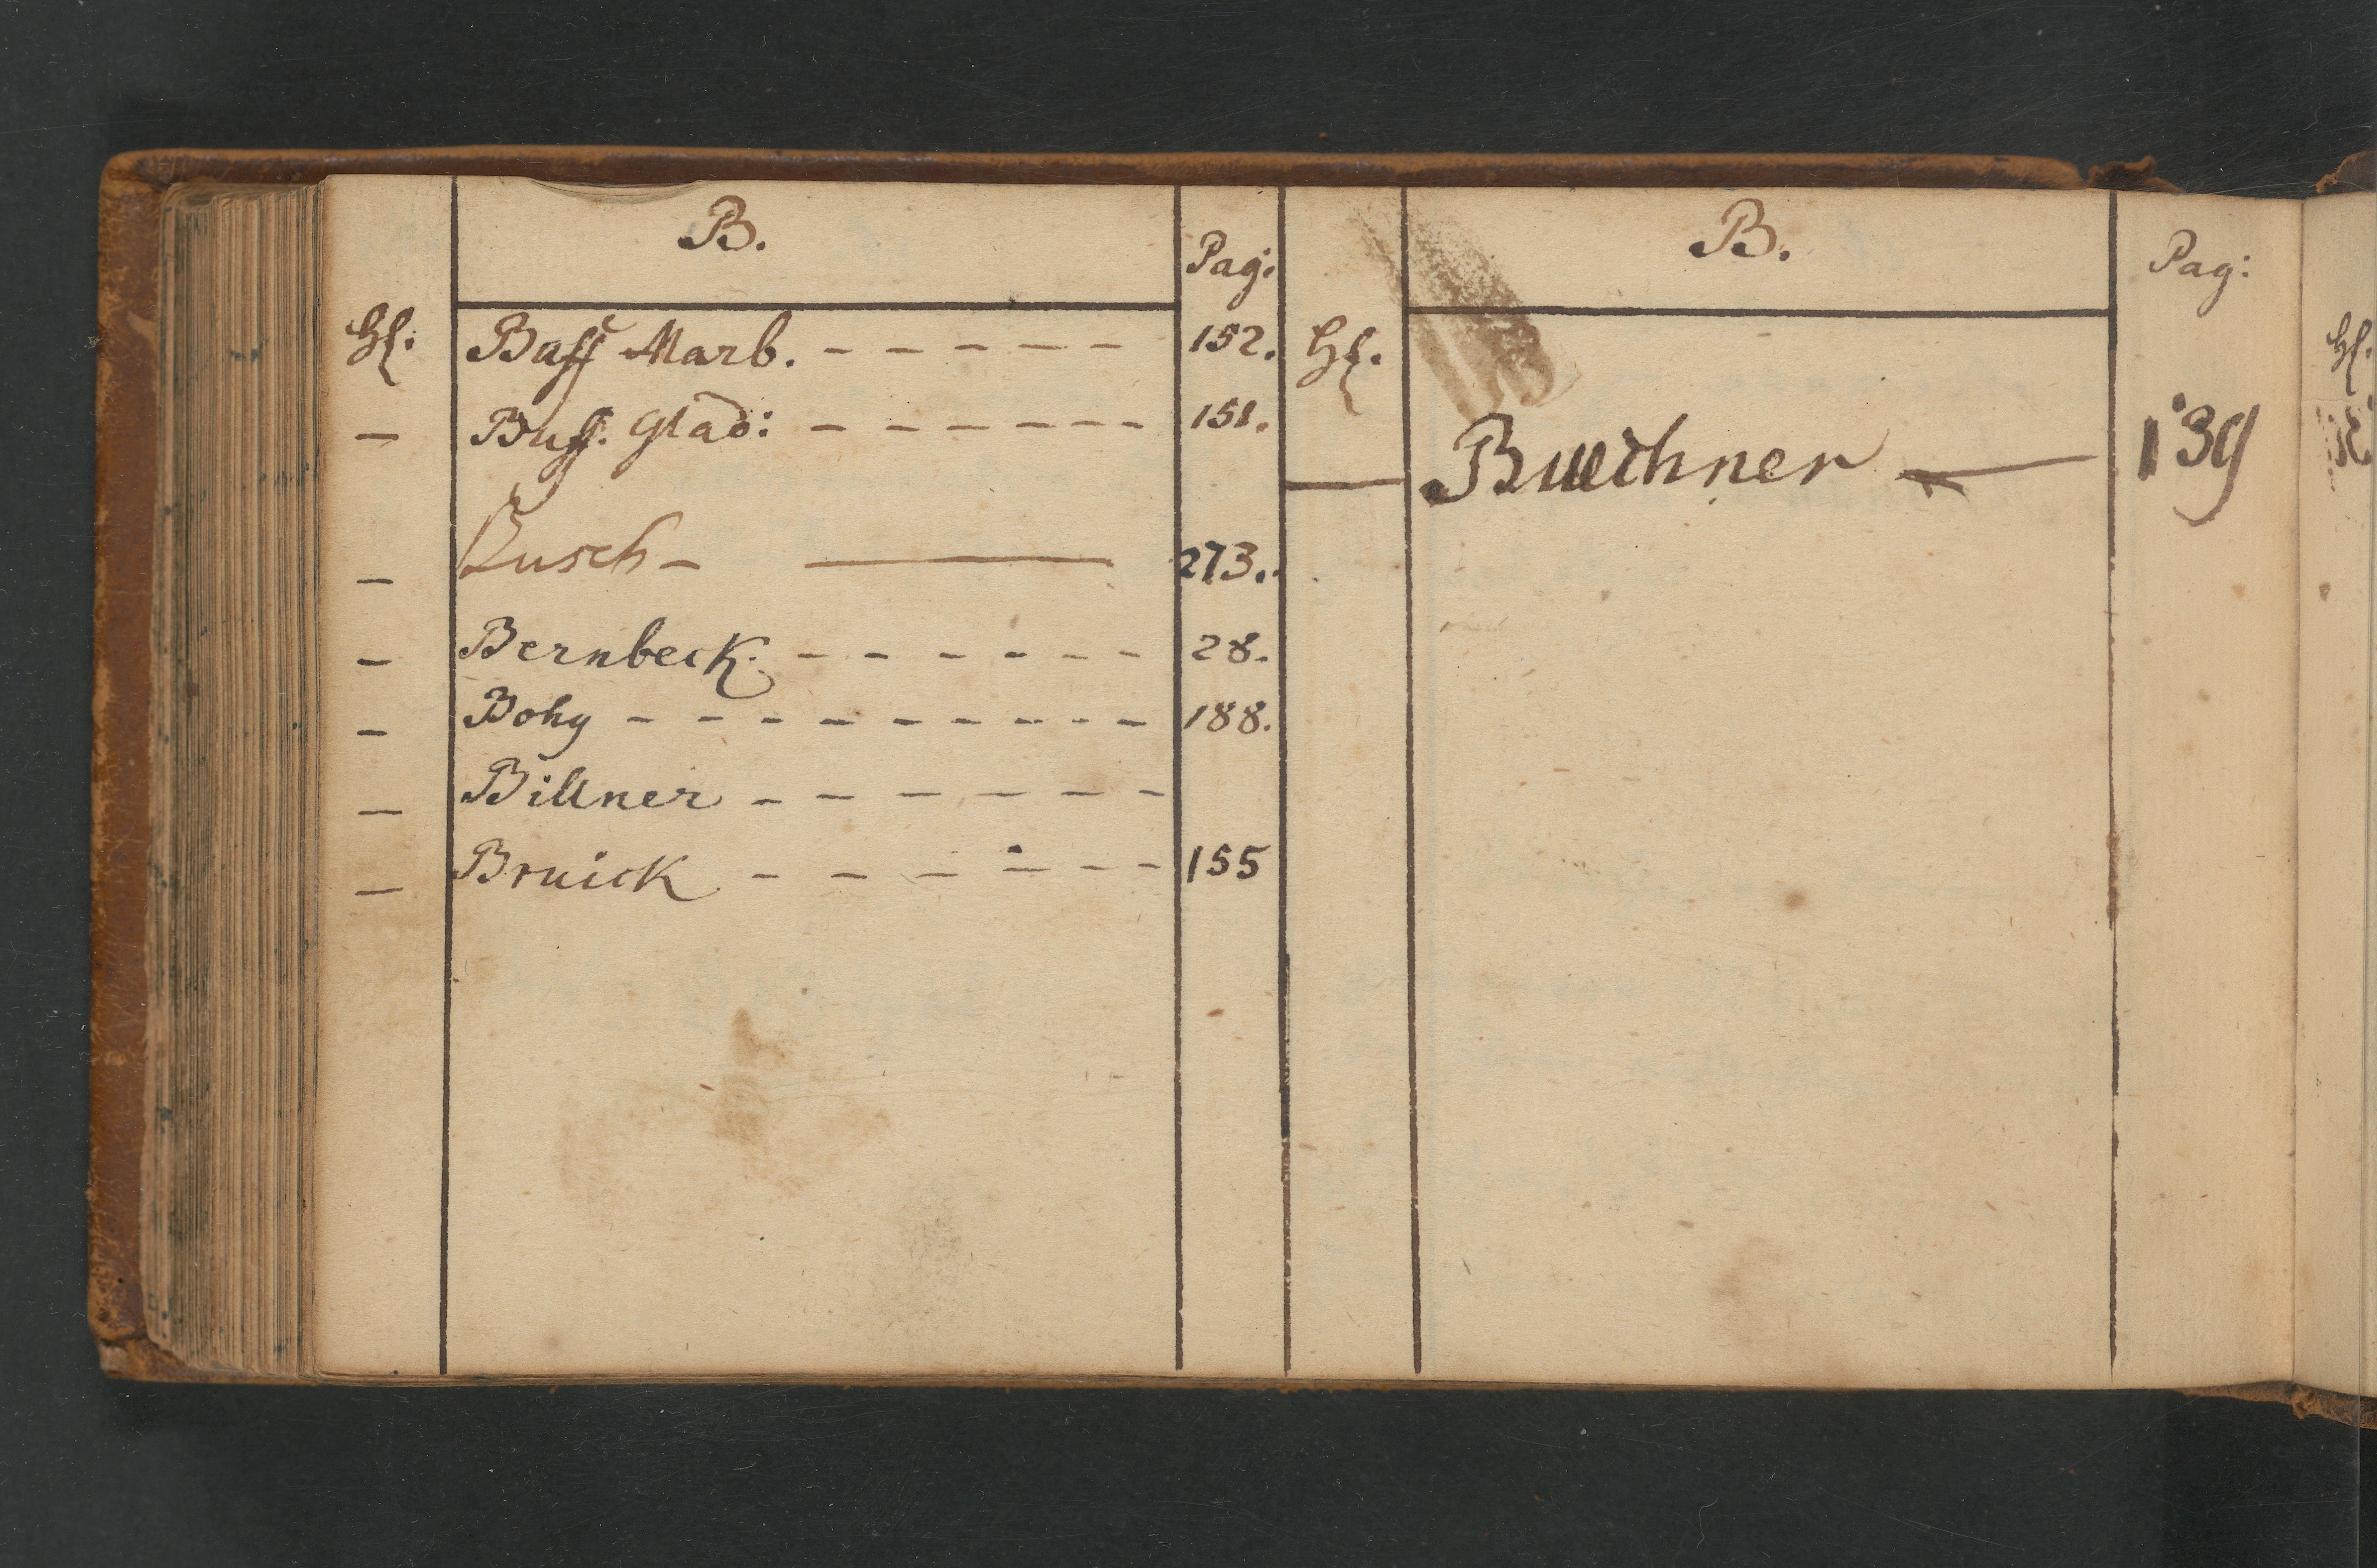 B.
Pag:
Hl. Buff Marb. - - - - - - 152.
— Buff. Glad: - - - - - - 151.
— Busch - — 273.
— Bernbeck. - - - - - - 28.
— Bohy - - - - - - - - - - 188.
— Billner - - - - - -
— Bruick - - - - - - 155
B.
Pag:
Hl.
— Buechner — 139
Hl.